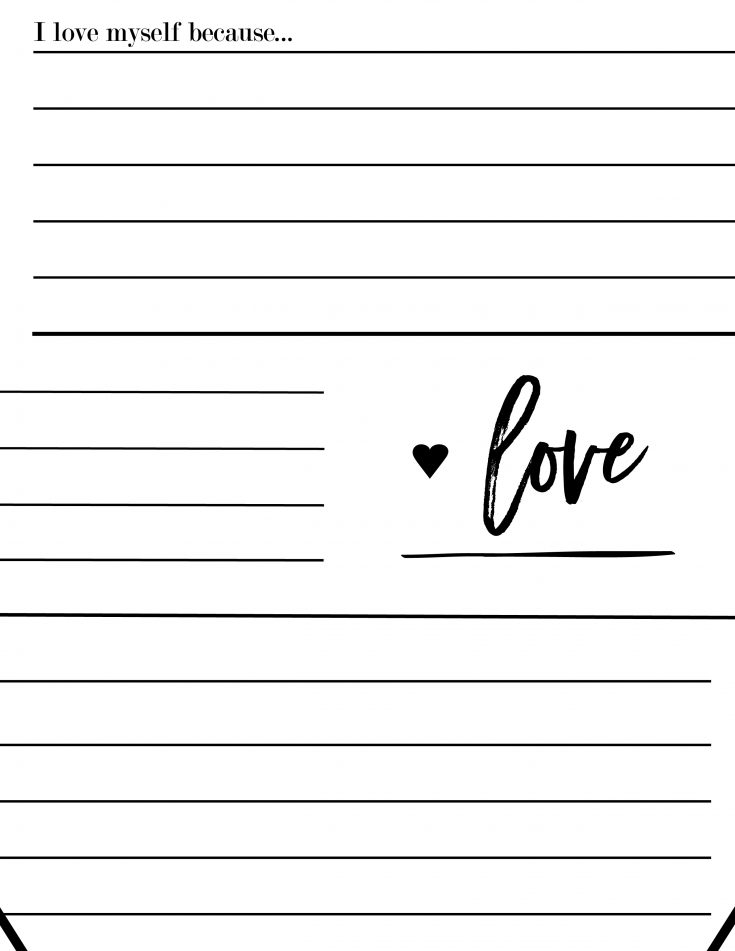 I love myself because...
love